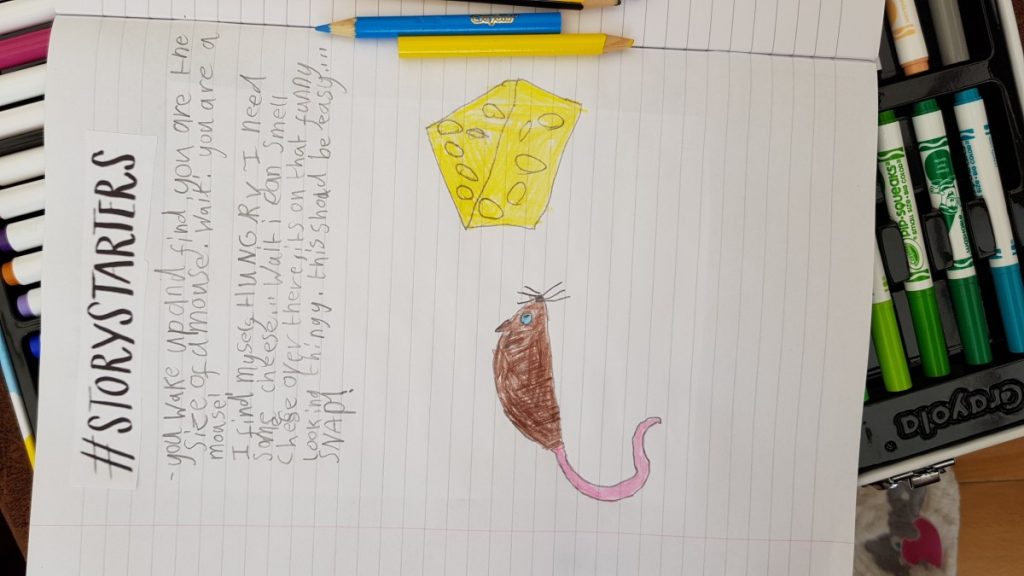 #STORYSTARTERS
-you wake up and find you are the
size of a mouse! wait! you are a
mouse!
I find myself HUNGRY I need
some cheese... Wait i can smell
chese over there, its on that funny
looking thingy. this should be easy....
SNAP!
crayola
pip-squeaks
Crayola